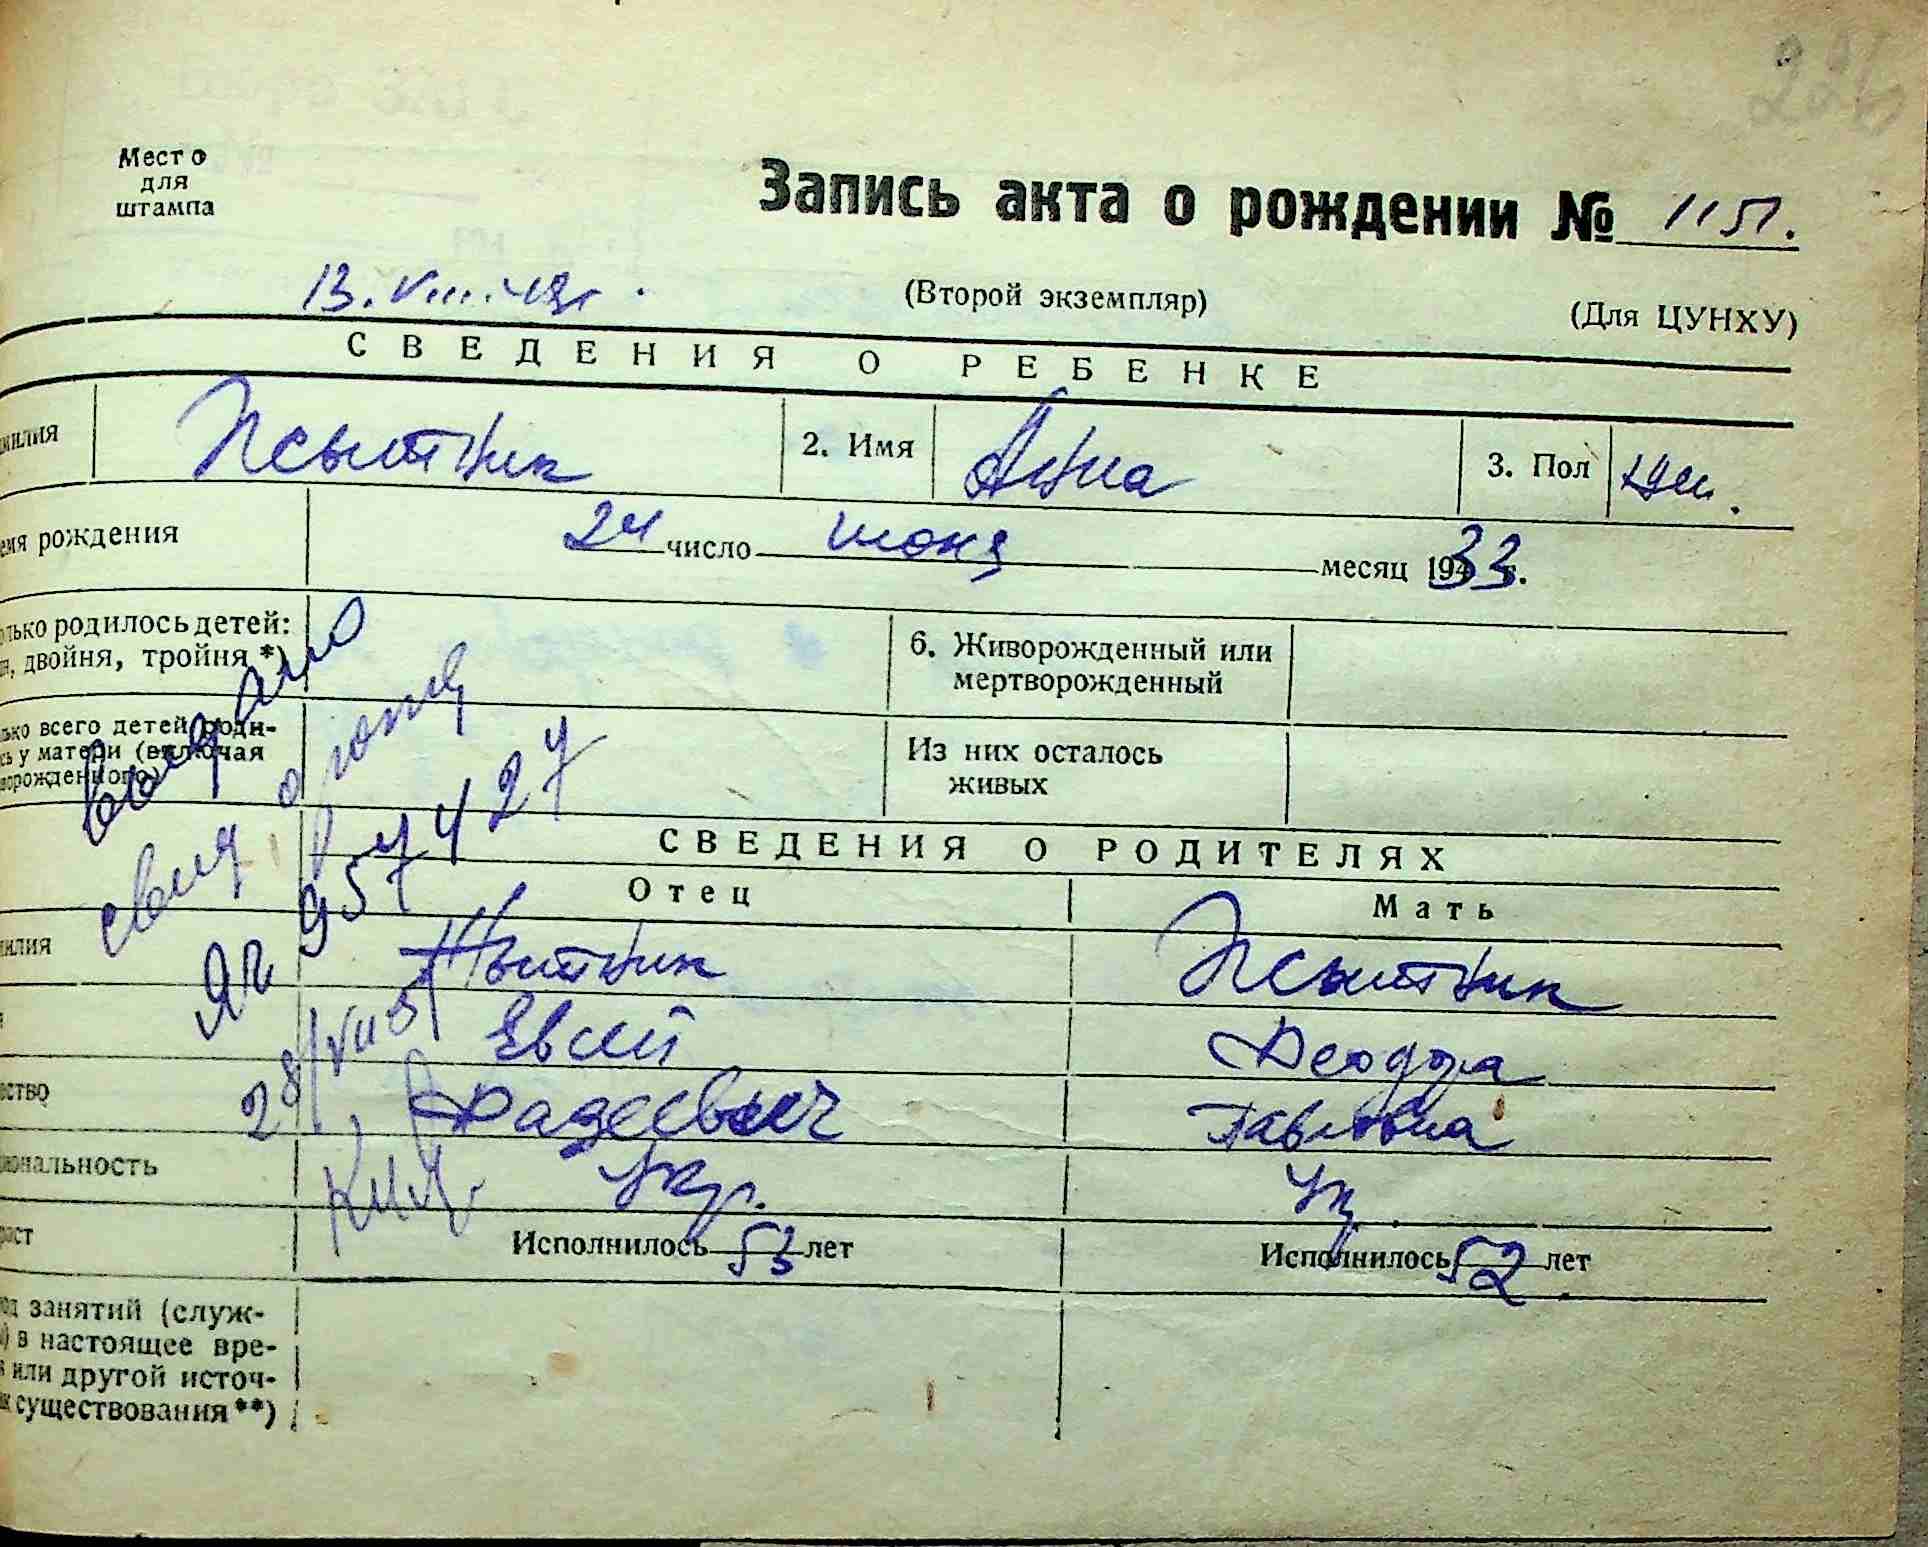 Место
для
штампа
Запись акта о рождении № 1151.
13.VIII.49г.
(Второй экземпляр)
(Для ЦУНХУ)
СВЕДЕНИЯ О РЕБЕНКЕ
милия
2. Имя Анна
3. Пол жен.
емя рождения 24 число июня месяц 1933 г.
лько родилось детей:
двойня, тройня *)
6. Живорожденный или
мертворожденный
лько всего детей роди-
сь у матери (включая
ворожденного)
Из них осталось
живых
СВЕДЕНИЯ О РОДИТЕЛЯХ
Отец Мать
милия
Евсей
ство Фадеевич Павловна
иональность Укр. Ук
раст Исполнилось 53 лет Исполнилось 52 лет
од занятий (служ-
) в настоящее вре-
или другой источ-
к существования **)
выдано
свид. о
ЯГ 957427